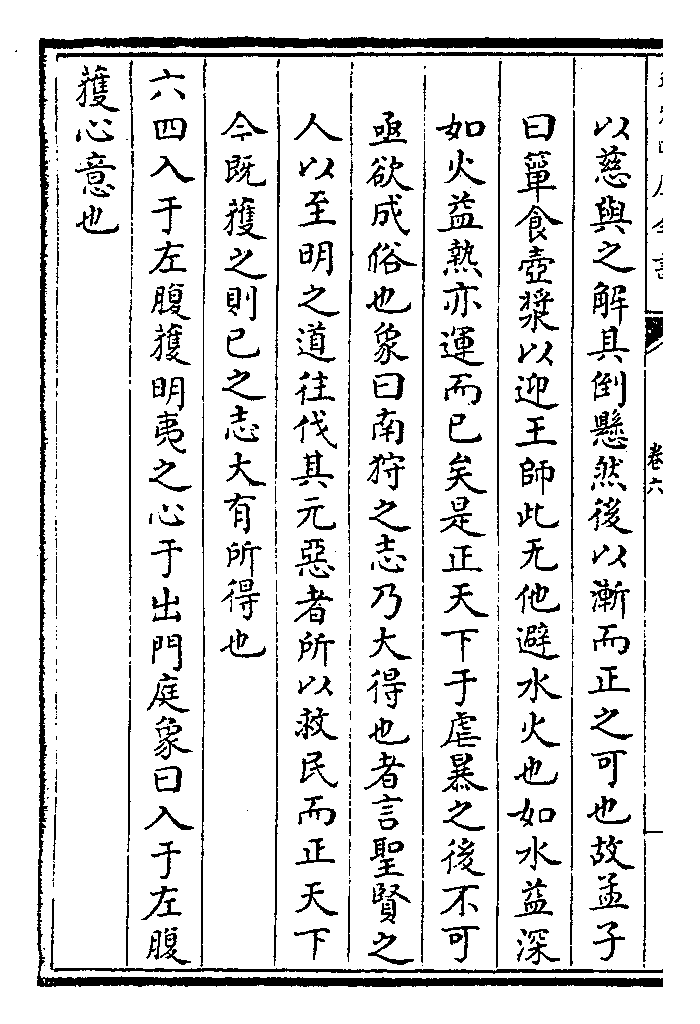 卷六
以慈與之解其倒懸然後以漸而正之可也故孟子
曰簞食壺漿以迎王師此无他避水火也如水益深
如火益熱亦運而已矣是正天下于虐暴之後不可
亟欲成俗也象曰南狩之志乃大得也者言聖賢之
人以至明之道往伐其元惡者所以救民而正天下
今既獲之則已之志大有所得也
六四入于左腹獲明夷之心于出門庭象曰入于左腹
獲心意也